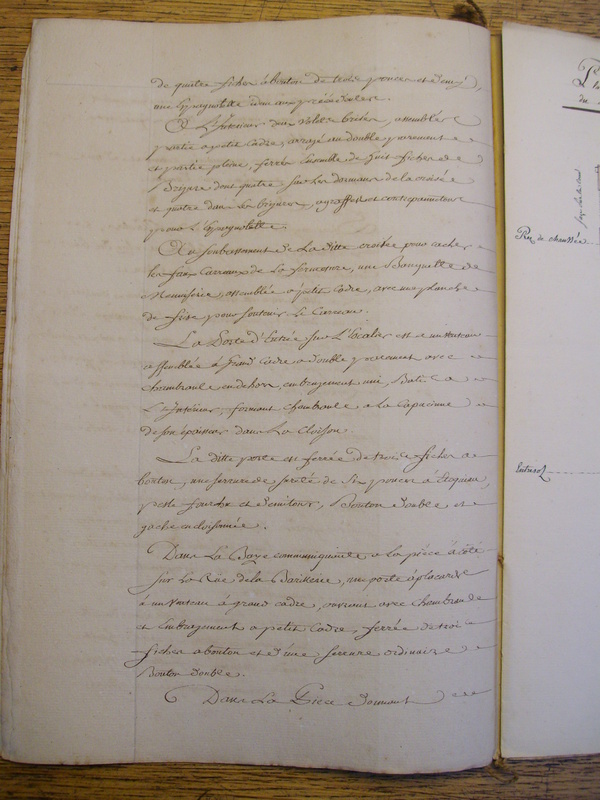 de quatre fiches à bouton de trois pouces et demy,
une Espagnolette idem aux précédentes.
A L'Interieur deux Volets brisés, assemblés
partie à petit Cadre, arrazé au double parement
et partie pleine, ferrés Ensemble de huit fiches de
Brisure dont quatre sur les dormans de la croisée
et quatre dans les brisures, agraffes et contrepanneton
pour L'Espagnolette.
Au Soubassement de La ditte croisée pour cacher
les faux Carreaux de la fermeture, une Banquette de
Menuiserie, assemblée à petit Cadre, avec une planche
de frise pour soutenir Le Carreau.
La Porte d'Entrée sur L'Escalier est à un Venteau
assemblée à Grand Cadre à double parement avec
chambranle en dehors, embrazement uni, Bati à
L'Interieur, formant chambranle à la Capucinne
de son épaisseur dans La Cloison.
La ditte porte est ferrée de trois fiches à
bouton, une serrure de sureté de Six pouces à Etoquiau,
pesle fourchu et demitour, Bouton double et
gache encloisonnée.
Dans La Baye communiquante à la pièce à côté
sur La Rüe de la Barillerie, une porte à placard
à un Venteau à grand cadre, ouvrant avec Chambranle
et Embrazement à petit Cadre, ferrée de trois
fiches à bouton et d'une serrure ordinaire
Bouton double.
Dans La Piece donnant
Rez de chaussée
Entresol